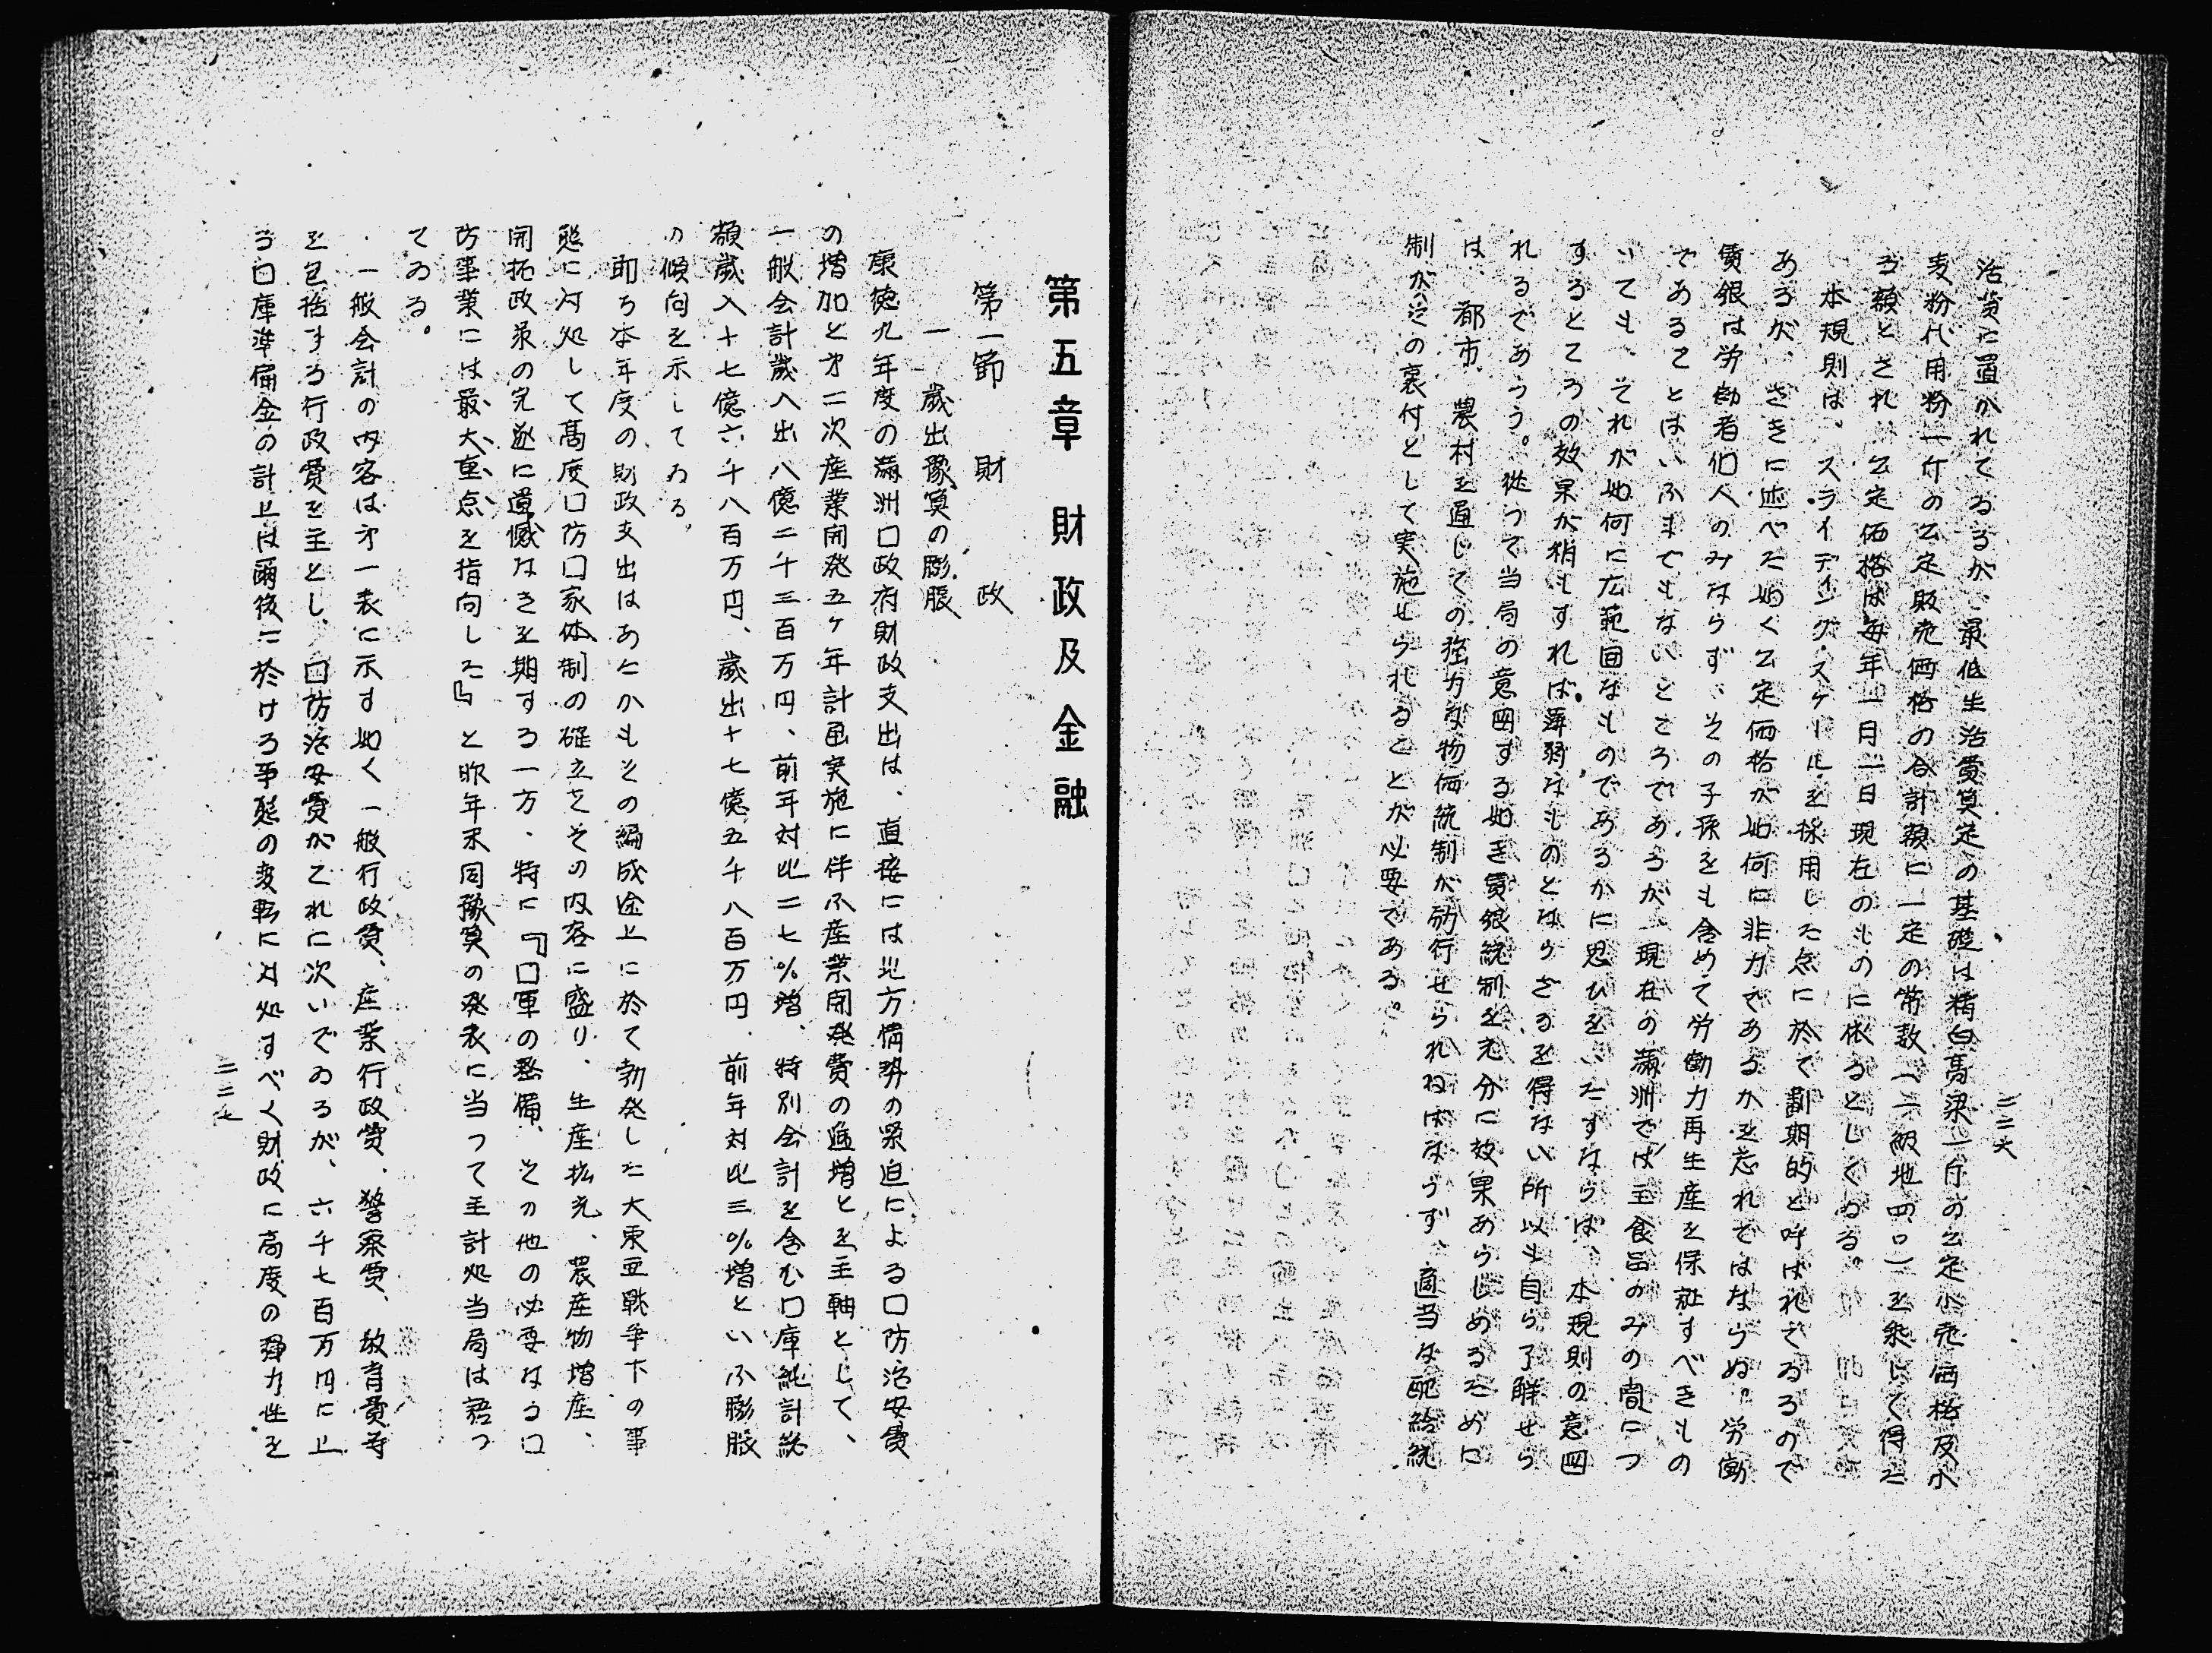 二二六
活費に置かれてゐるが、最低生活費算定の基礎は精白高梁一斤の公定小売価格及小
麦粉代用粉一斤の公定販売価格の合計額に一定の常数（一級地四〇）を乗じて得た
る額とされ、公定価格は毎年一月一日現在のものに依るとしてゐる。
本規則は、スライディング・スケールを採用した点に於て劃期的と呼ばれてゐるので
あるが、さきに述べた如く公定価格が如何に非力であるかを忘れてはならぬ。労働
賃銀は労働者個人のみならず、その子孫をも含めて労働力再生産を保証すべきもの
であることはいふまでもないところであるが、現在の満洲では主食品のみの間につ
いても、それが如何に広範囲なものであるかに思ひをいたすならば、本規則の意図
するところの効果が稍もすれば薄弱なものとならざるを得ない所以も自ら了解せら
れるであらう。従つて当局の意図する如き賃銀統制を充分に効果あらしめるために
は、都市、農村を通じての強力な物価統制が励行せられねばならず、適当な配給統
制がその裏付として実施せられることが必要である。
第五章　財政及金融
第一節　財政
一　歳出豫算の膨脹
康徳九年度の満洲囗政府財政支出は、直接には北方情勢の緊迫による囗防治安費
の増加と才二次産業開発五ケ年計画実施に伴ふ産業開発費の逓増とを主軸として、
一般会計歳入出八億二千三百万円、前年対比二七％増、特別会計を含む囗庫純計総
額歳入十七億六千八百万円、歳出十七億五千八百万円、前年対比三％増といふ膨脹
の傾向を示してゐる。
即ち本年度の財政支出はあたかもその編成途上に於て勃発した大東亜戦争下の事
態に対処して高度囗防囗家体制の確立をその内容に盛り、生産拡充、農産物増産、
開拓政策の完遂に遺憾なきを期する一方、特に『囗軍の整備、その他の必要なる囗
防事業には最大重点を指向した』と昨年末同豫算の発表に当つて主計処当局は語つ
てゐる。
一般会計の内容は才一表に示す如く一般行政費、産業行政費、警察費、教育費等
を包括する行政費を主とし、囗防治安費がこれに次いでゐるが、六千七百万円に上
る囗庫準備金の計上は爾後に於ける事態の変転に対処すべく財政に高度の弾力性を
二二七